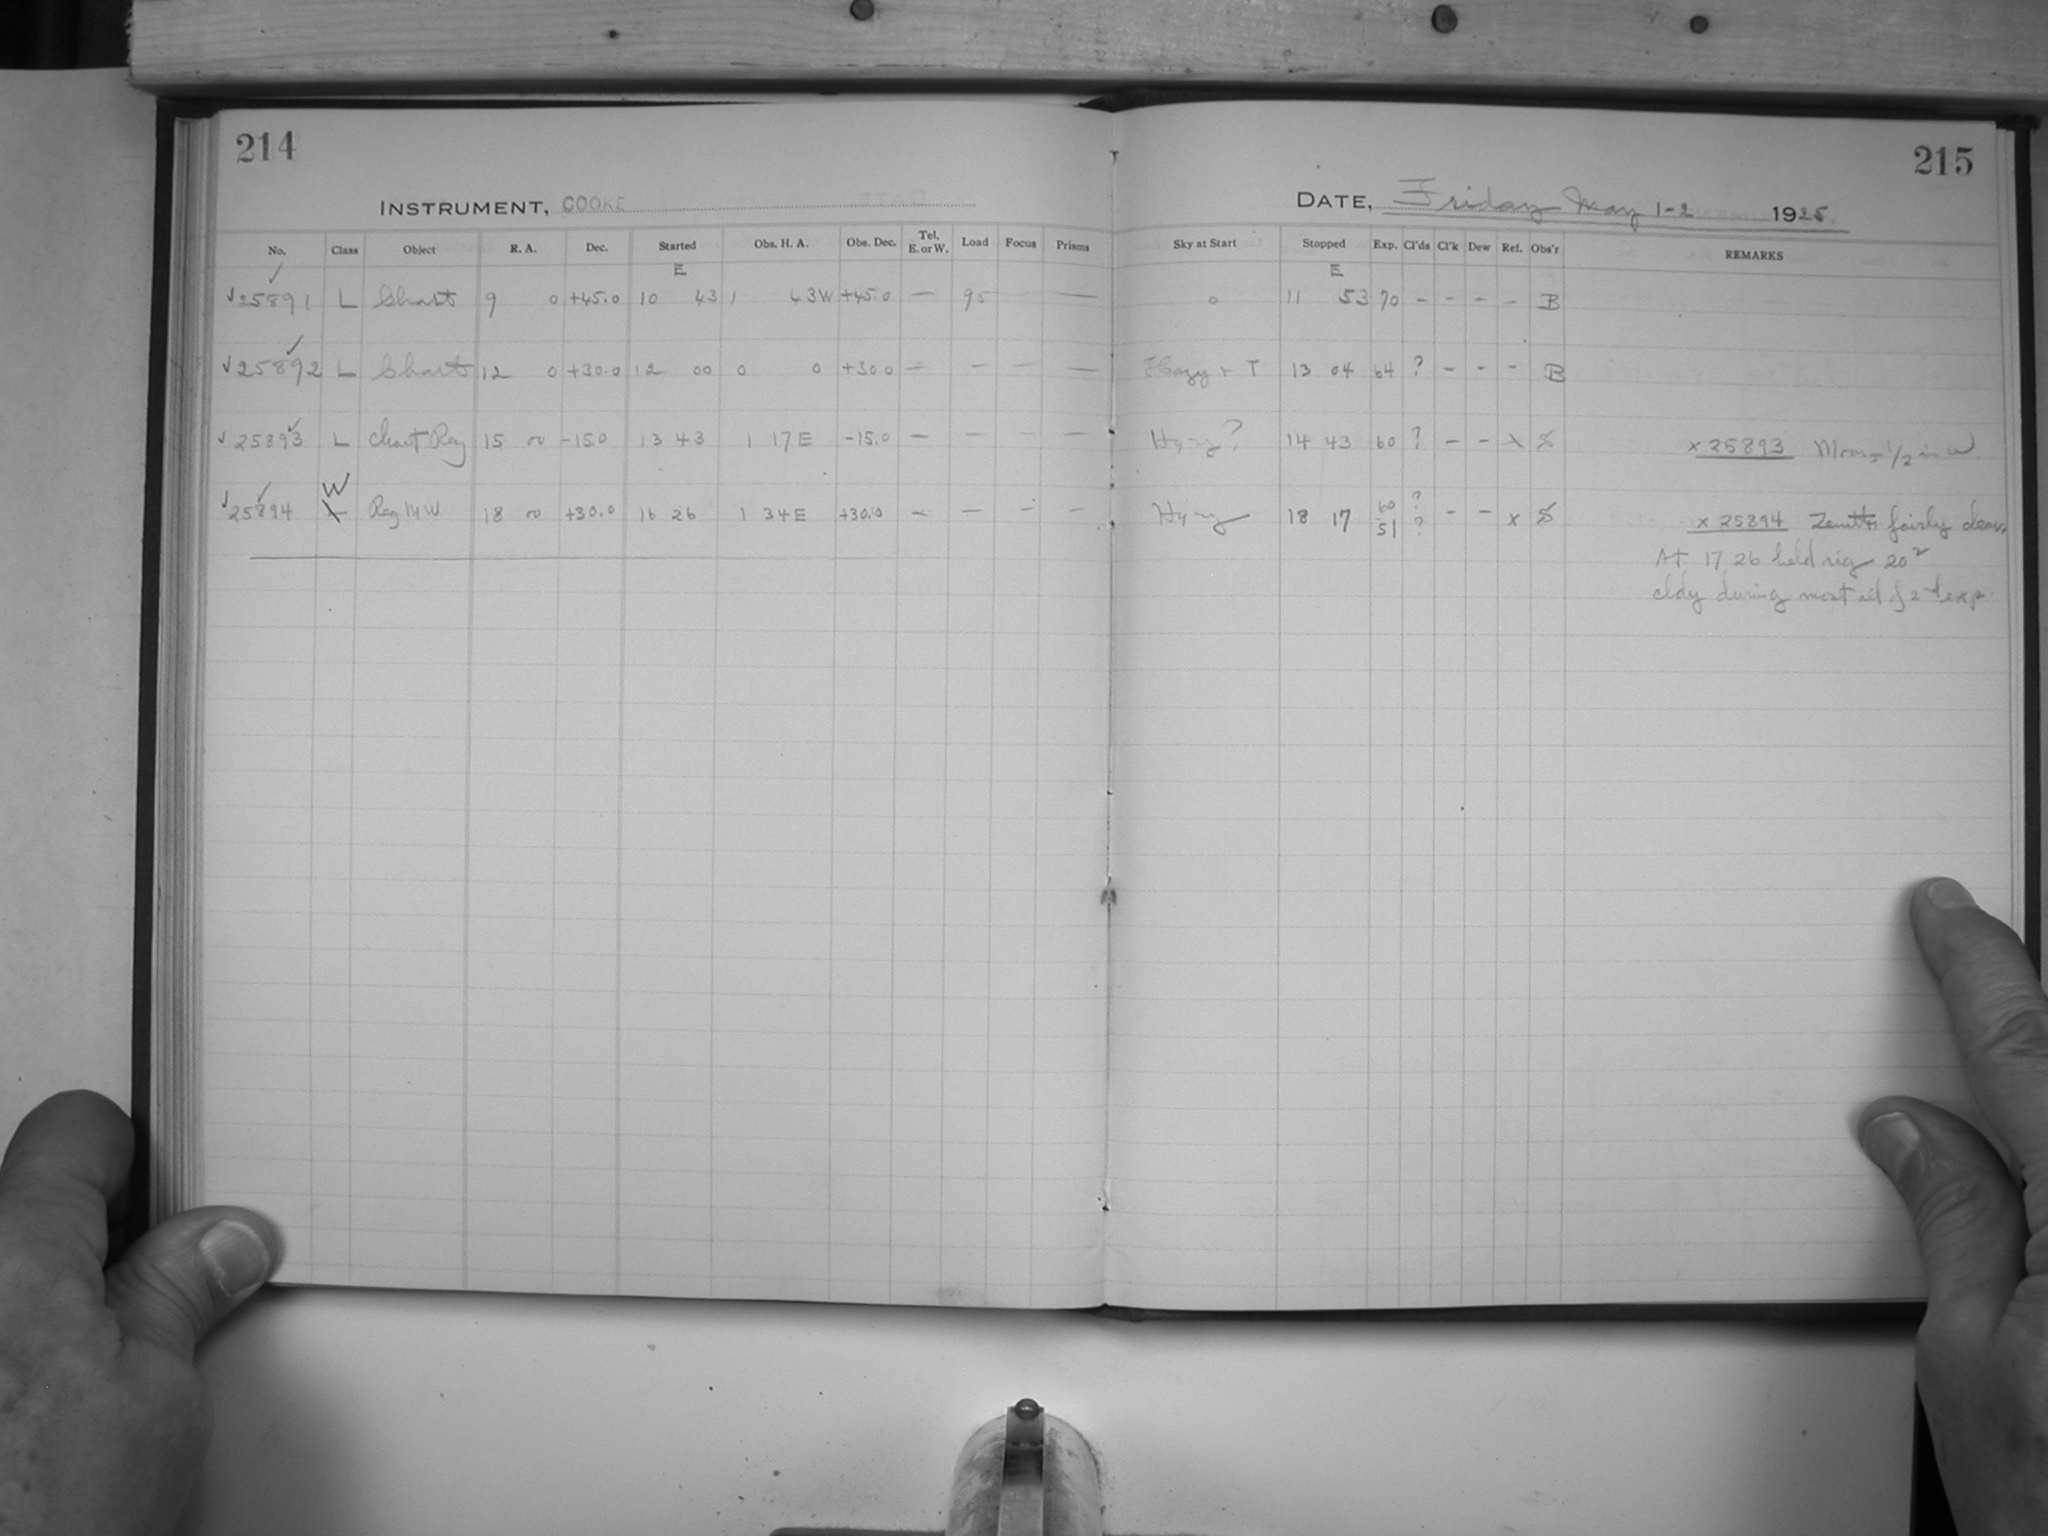 214
INSTRUMENT, COOKE
No. Class Object R. A. Dec. Started Obs. H. A. Obs. Dec. Tel. E. or W. Load Focus Prisms
E
✓25891 L Chart 9 0 +45.0 10 43 1 43W +45.0 — 95 —
✓25892 L Chart 12 0 +30.0 12 00 0 0 +30.0 — — — —
✓25893 L Chart Reg 15 00 -15.0 13 43 1 17E -15.0 — — — —
W
✓25894 L Reg 14W 18 00 +30.0 16 26 1 34E +30.0 — — — —
215
DATE, Friday May 1-2 1925
Sky at Start Stopped Exp. Cl'ds Cl'k Dew Ref. Obs'r REMARKS
E
0 11 53 70 - - - - B
Hazy + T 13 04 64 ? - - - B
Hazy? 14 43 60 ? - - x x 25893 Moon 1/2 in W
Hazy 18 17 60 ? - - x x 25894 Zenith fairly clear.
51 ?
At 17 26 held rig 20
cldy during most all of 2nd exp.